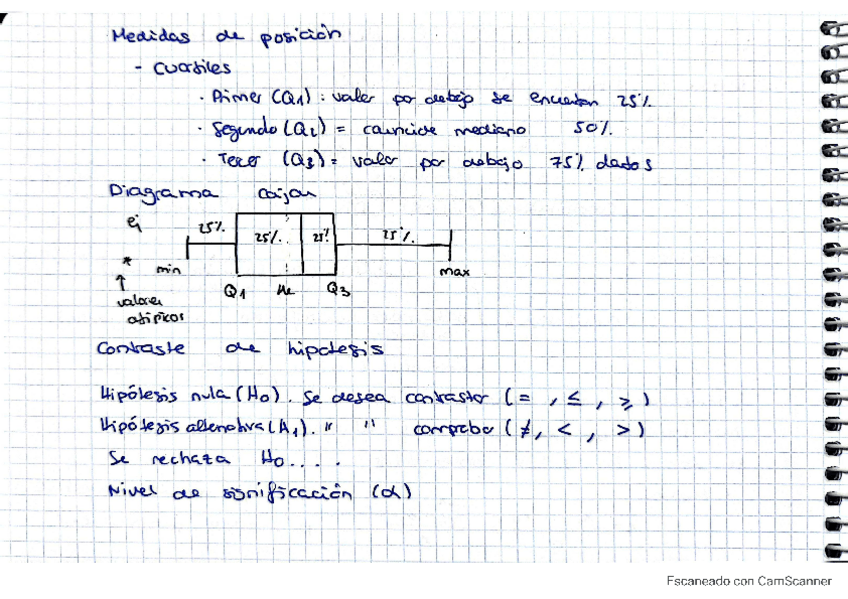 Medidas de posición
- Cuartiles
· Primer (Q1) : valor por debajo se encuentran 25%
· Segundo (Q2) = coincide mediana 50%
· Tercer (Q3) = valor por debajo 75% datos
Diagrama cajas
ej 25% 25% 25% 25%
* min max
Q1 Me Q3
valores
atípicos
Contraste de hipótesis
Hipótesis nula (H0). Se desea contrastar (= , ≤ , ≥)
Hipótesis alternativa (H1). " " comprobar (≠, < , >)
Se rechaza H0....
Nivel de significación (α)
Escaneado con CamScanner